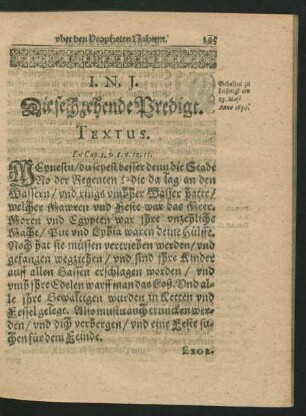 vber den Propheten Nahum. 295
I. N. J.
Die sechzehende Predigt.
Gehalten zu
Leipzigk am
TEXTUS.
Ex Cap. 3. v. 8. 9. 10. 11.
MEynestu / du seyest besser denn die Stadt
No der Regenten / die da lag an den
Wassern / vnd rings vmbher Wasser hatte /
welcher Mawren vnd Feste war das Meer.
Moren vnd Egypten war jhre vnzehliche
Macht / Put vnd Lybia waren deine Hülffe.
Noch hat sie müssen vertrieben werden / vnd
gefangen wegziehen / vnd sind jhre Kinder
auff allen Gassen erschlagen worden / vnd
vmb jhre Edelen warff man das Loß. Vnd al-
le jhre Gewaltigen wurden in Ketten vnd
Fessel gelegt. Also mustu auch truncken wer-
den / vnd dich verbergen / vnd eine Feste su-
chen für dem Feinde.
EXOR-